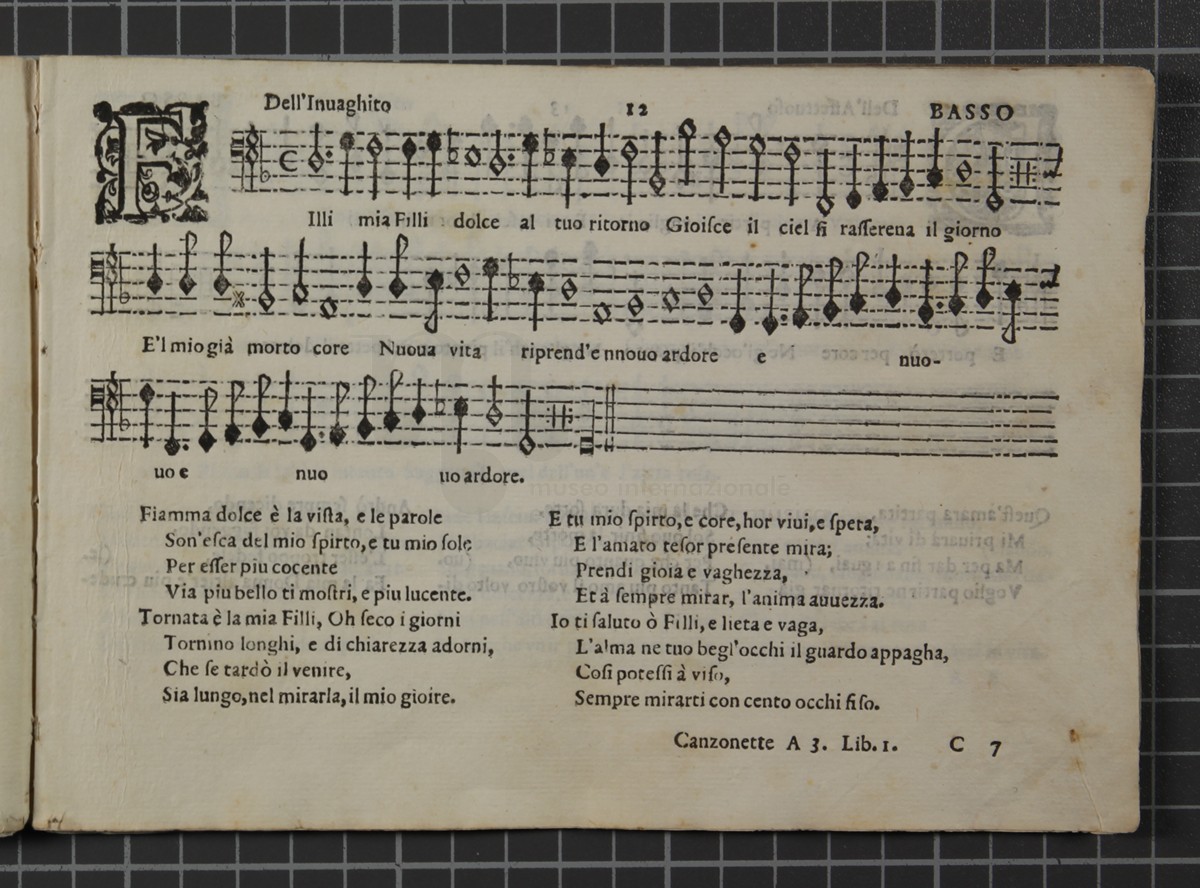 Dell'Inuaghito 12 BASSO
FIlli mia Filli dolce al tuo ritorno Gioiſce il ciel ſi raſſerena il giorno
E'l mio già morto core Nuoua vita riprend'e nnouo ardore e nuo-
uo e nuo uo ardore.
Fiamma dolce è la viſta, e le parole
Son'eſca del mio ſpirto, e tu mio ſole
Per eſſer piu cocente
Via piu bello ti moſtri, e piu lucente.
Tornata è la mia Filli, Oh ſeco i giorni
Tornino longhi, e di chiarezza adorni,
Che ſe tardò il venire,
Sia lungo, nel mirarla, il mio gioire.
E tu mio ſpirto, e core, hor viui, e ſpera,
E l'amato teſor preſente mira;
Prendi gioia e vaghezza,
Et à ſempre mirar, l'anima auuezza.
Io ti ſaluto ò Filli, e lieta e vaga,
L'alma ne tuo begl'occhi il guardo appagha,
Coſi poteſſi à viſo,
Sempre mirarti con cento occhi fiſo.
Canzonette A 3. Lib. 1. C 7
museo internazionale